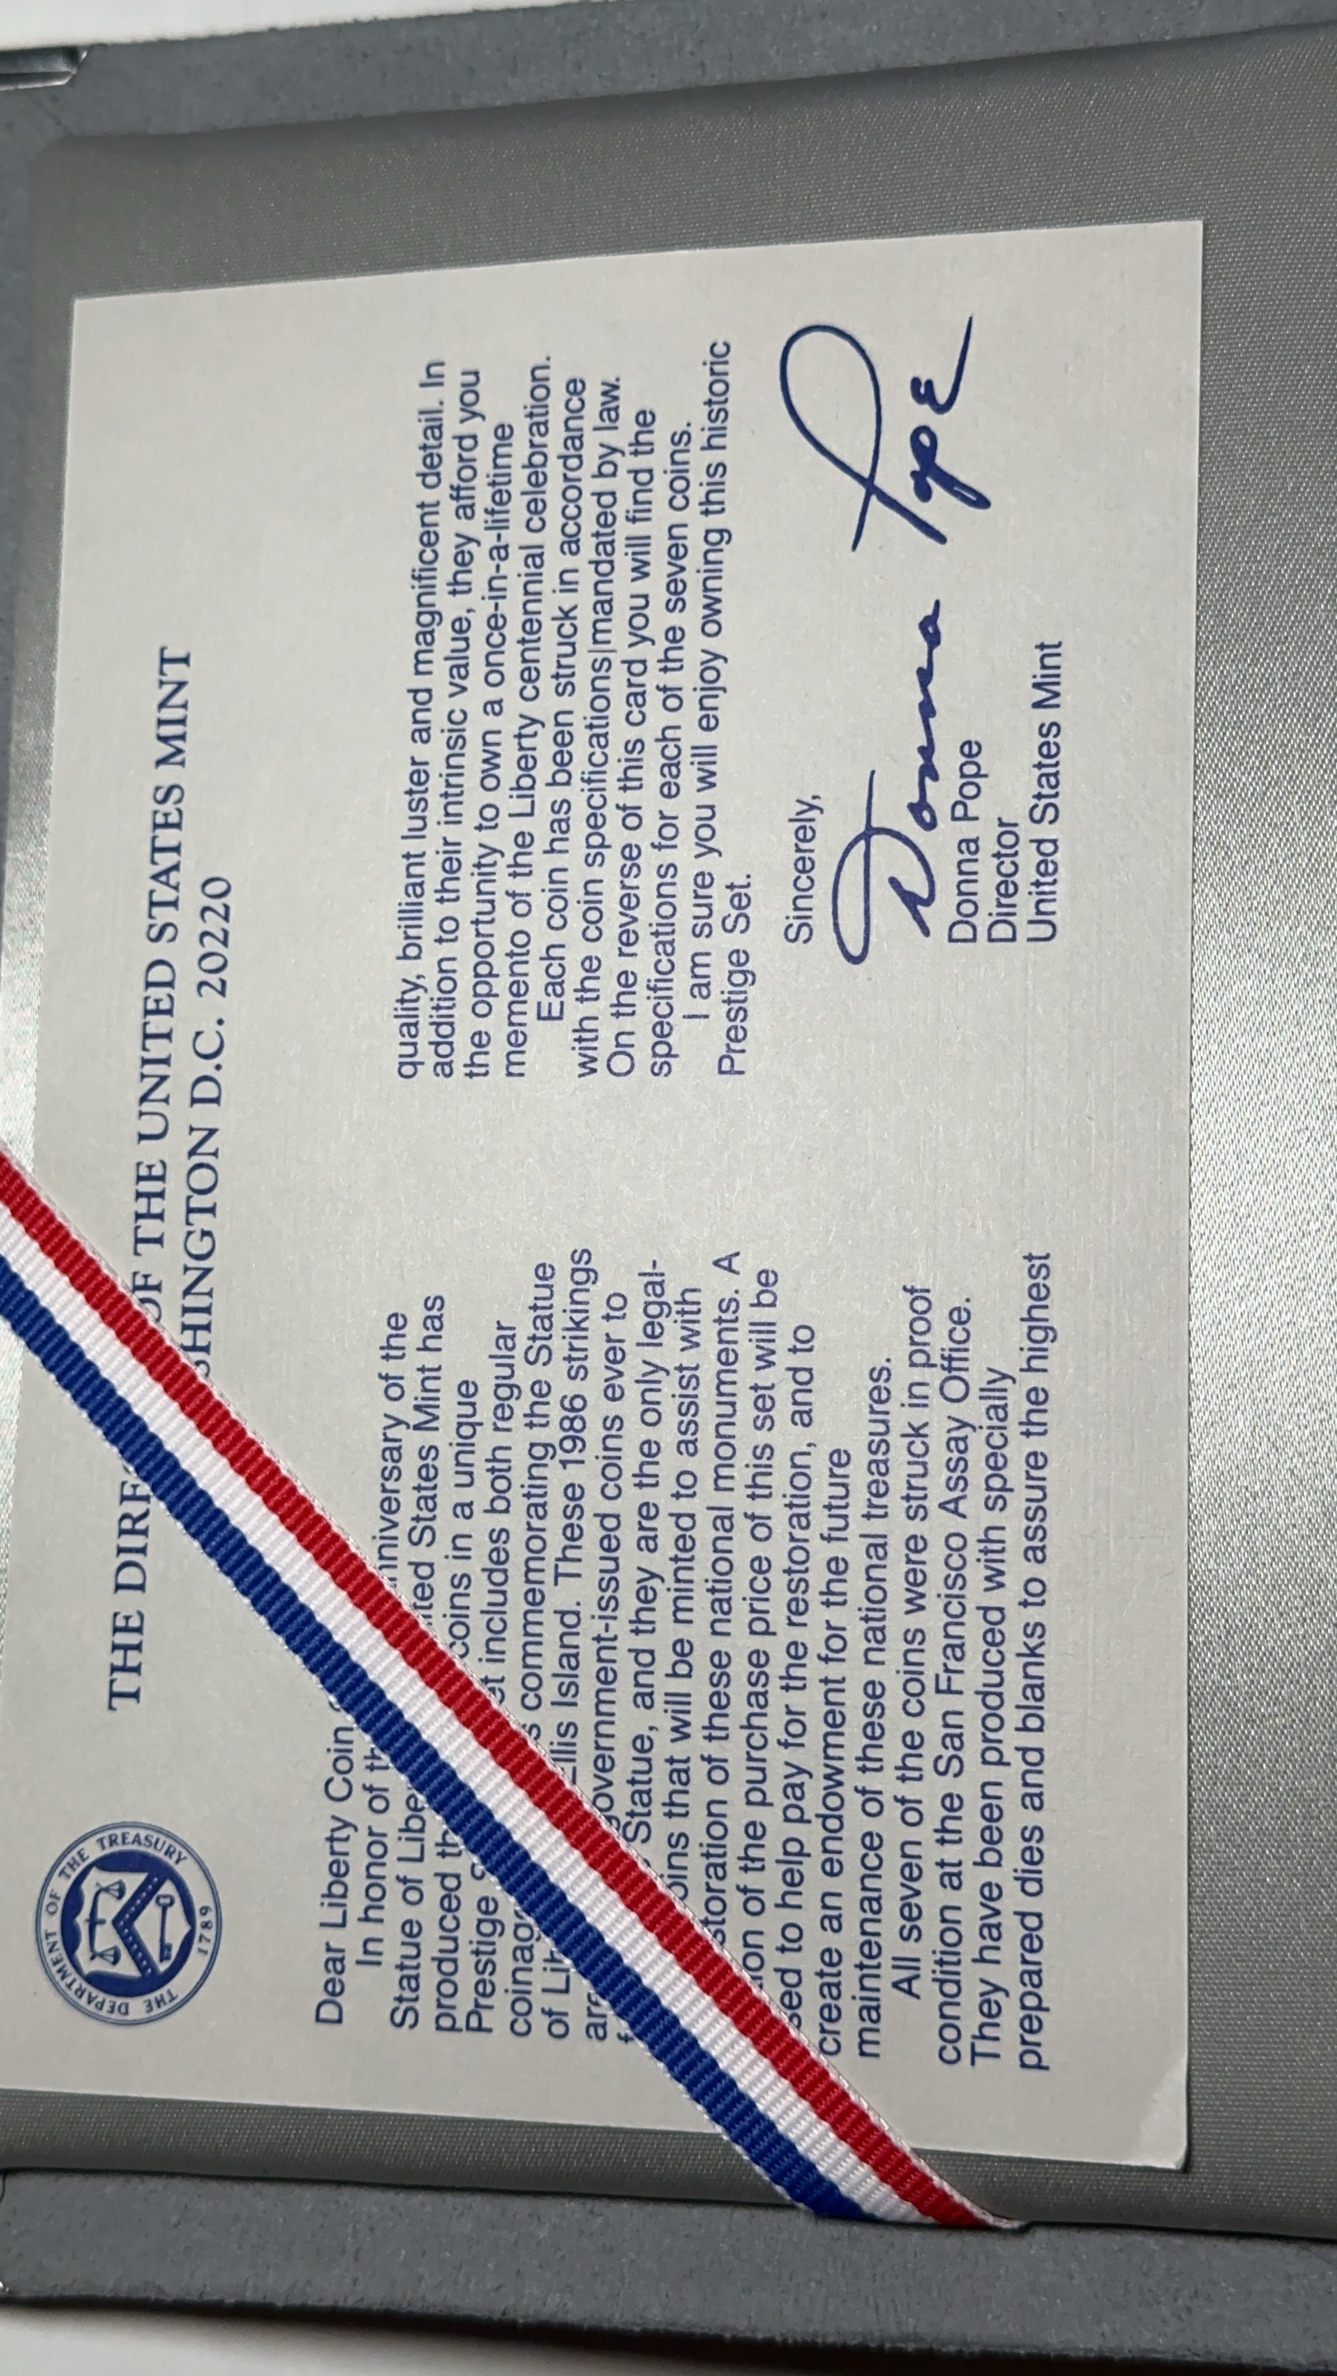 THE DEPARTMENT OF THE TREASURY
1789
THE OF THE UNITED STATES MINT
D.C. 20220
Dear Liberty Coin
In honor of
Statue of
produced
Prestige
of
create an endowment for the future
maintenance of these national treasures.
All seven of the coins were struck in proof
condition at the San Francisco Assay Office.
They have been produced with specially
prepared dies and blanks to assure the highest
of the
States Mint has
coins in a unique
includes both regular
commemorating the Statue
Island. These 1986 strikings
government-issued coins ever to
Statue, and they are the only legal-
that will be minted to assist with
of these national monuments. A
of the purchase price of this set will be
to help pay for the restoration, and to
quality, brilliant luster and magnificent detail. In
addition to their intrinsic value, they afford you
the opportunity to own a once-in-a-lifetime
memento of the Liberty centennial celebration.
Each coin has been struck in accordance
with the coin specifications mandated by law.
On the reverse of this card you will find the
specifications for each of the seven coins.
I am sure you will enjoy owning this historic
Prestige Set.
Sincerely,
Donna Pope
Donna Pope
Director
United States Mint